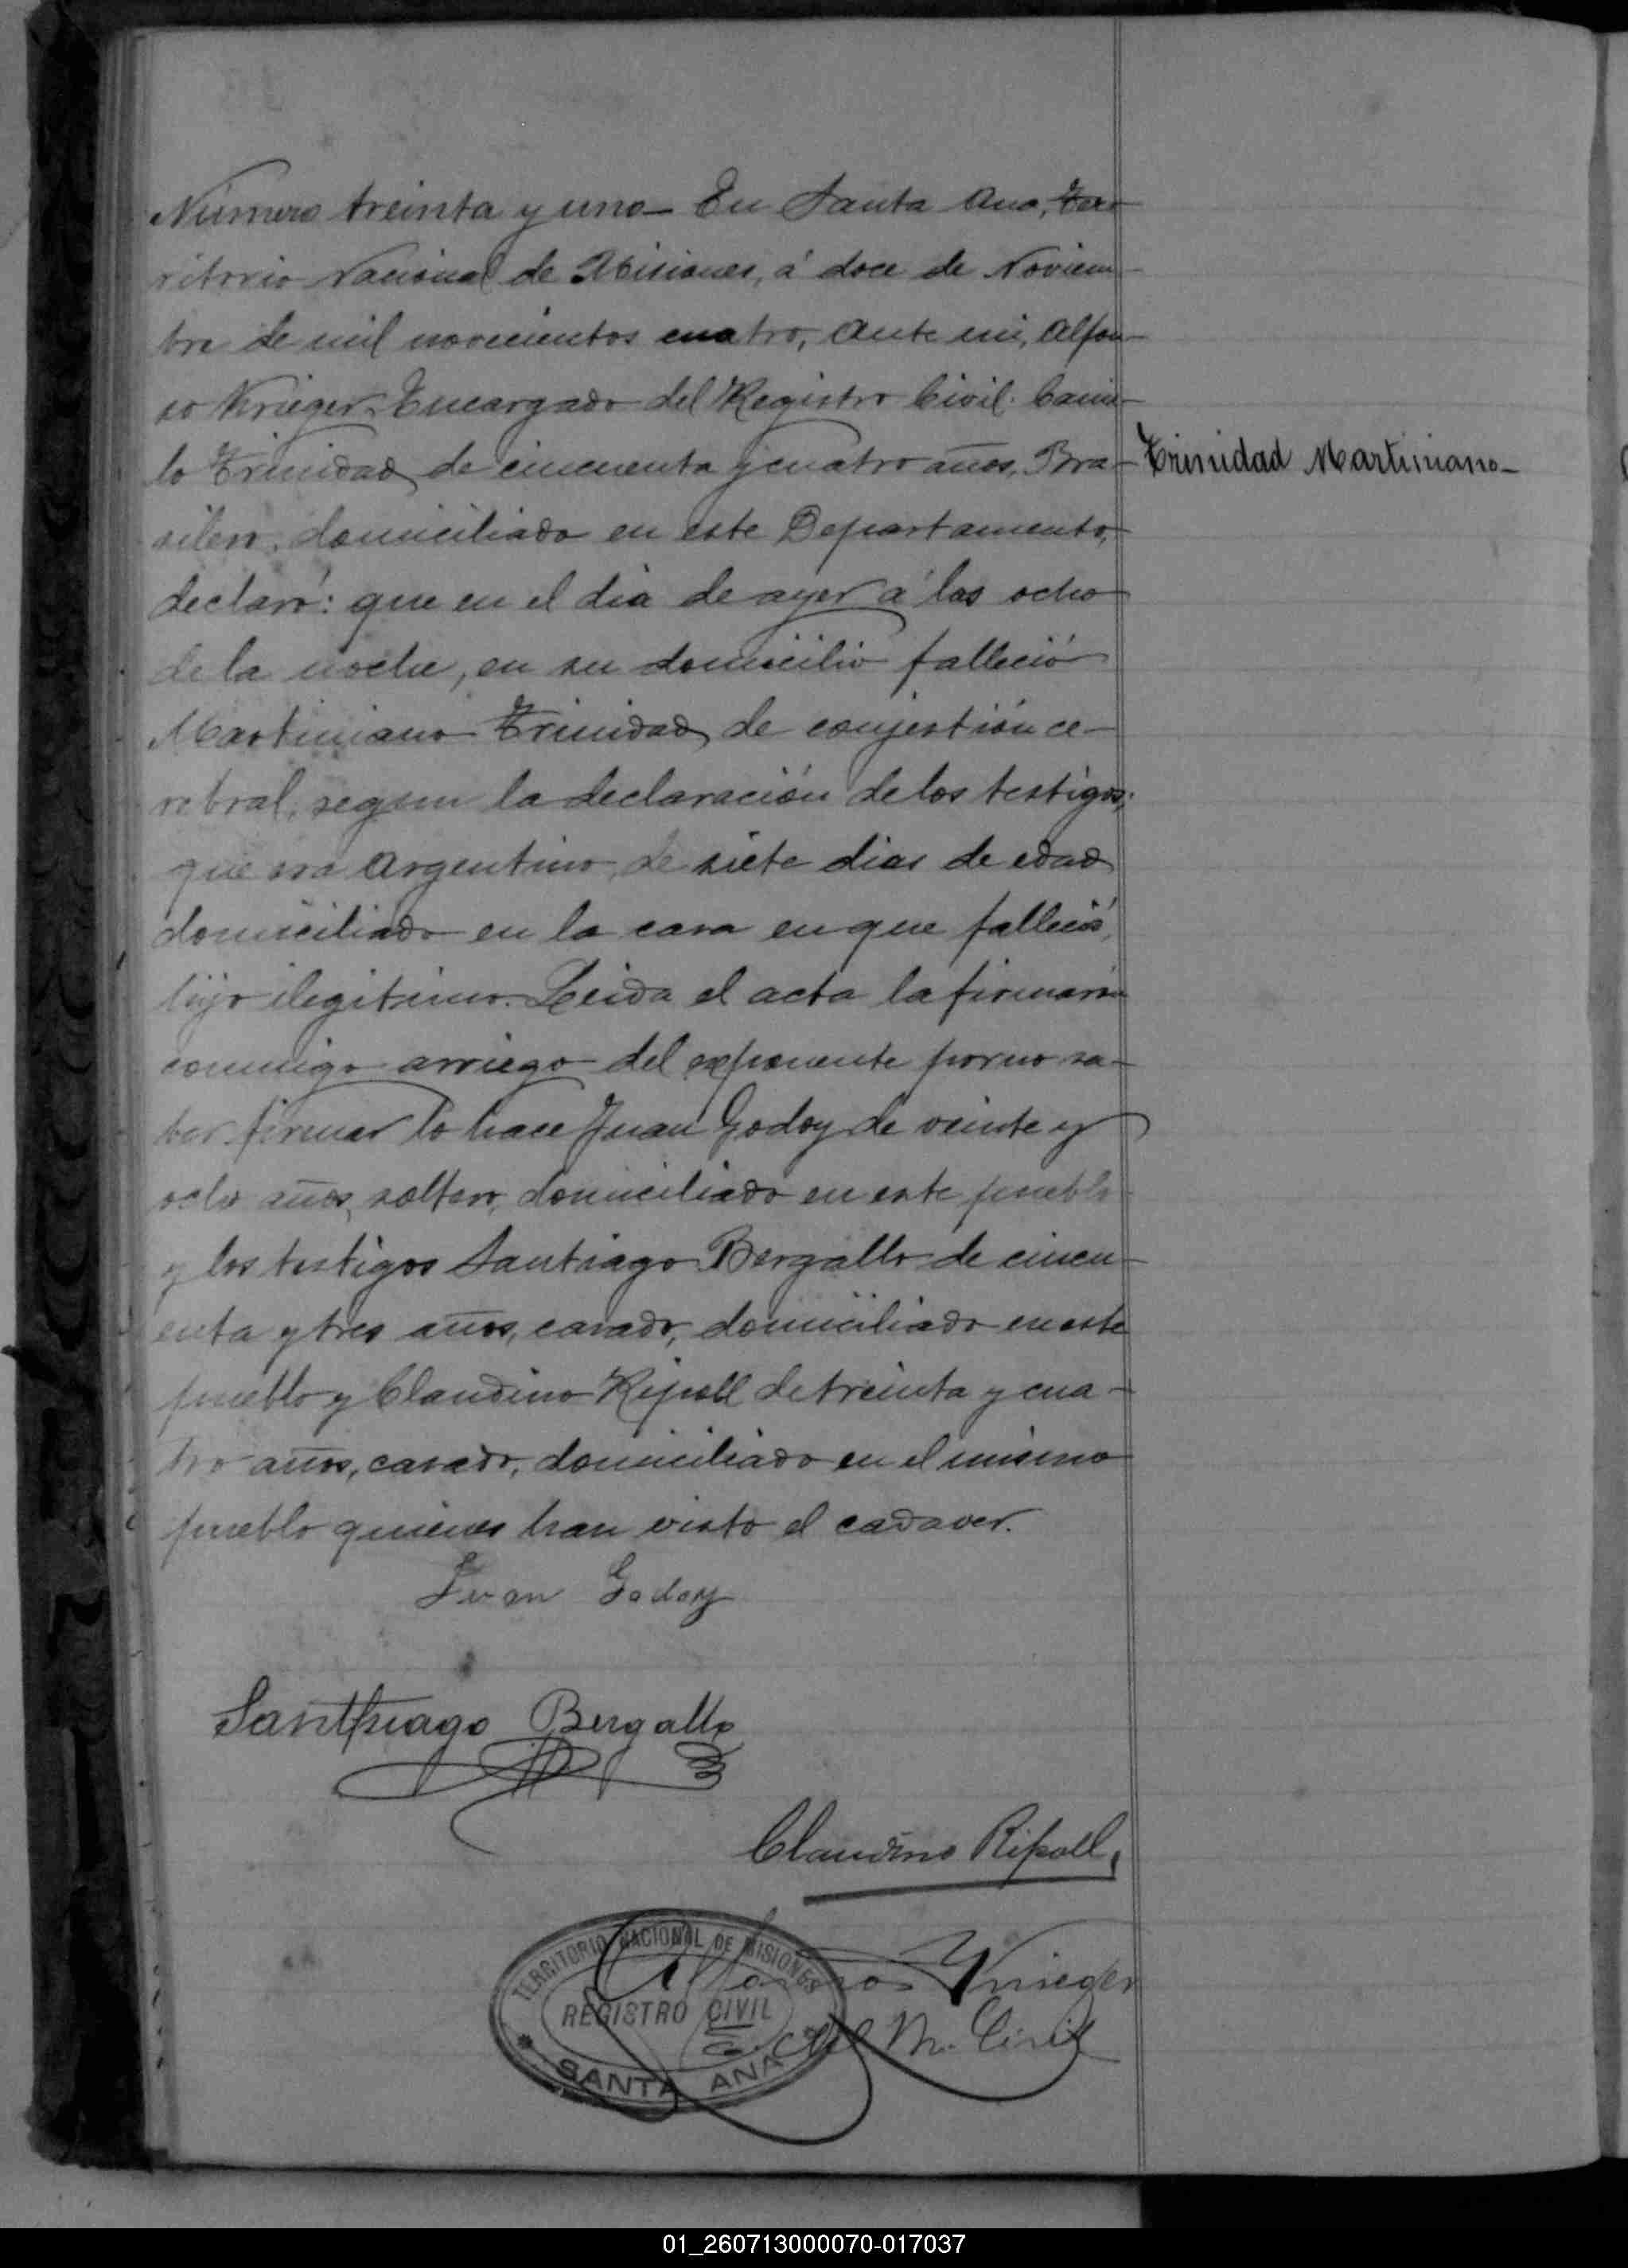 Número treinta y uno - En Santa Ana, Ter-
ritorio Nacional de Misiones, á doce de Noviem-
bre de mil novecientos cuatro, ante mi, Alfon-
so Krieger, Encargado del Registro Civil. Cami-
lo Trinidad, de cincuenta y cuatro años, Bra-
Trinidad Martiniano -
silero, domiciliado en este Departamento,
declaró: que en el dia de ayer á las ocho
de la noche, en su domicilio falleció
Martiniano Trinidad, de conjestión ce-
rebral, segun la declaración de los testigos;
que era Argentino, de siete dias de edad
domiciliado en la casa en que falleció,
hijo ilegitimo. Leida el acta la firmarón
conmigo arriego del exponente por no sa-
ber firmar lo hace Juan Godoy de veinte y
ocho años, soltero, domiciliado en este pueblo
y los testigos Santiago Bergallo de cincu-
enta y tres años, casado, domiciliado en este
pueblo y Claudino Ripoll de treinta y cua-
tro años, casado, domiciliado en el mismo
pueblo quienes han visto el cadaver.
Juan Godoy
Santhiago Bergallo
Claudino Ripoll,
TERRITORIO NACIONAL DE MISIONES
Alfonso Krieger
REGISTRO CIVIL
E. del R. Civil
SANTA ANA
01_260713000070-017037